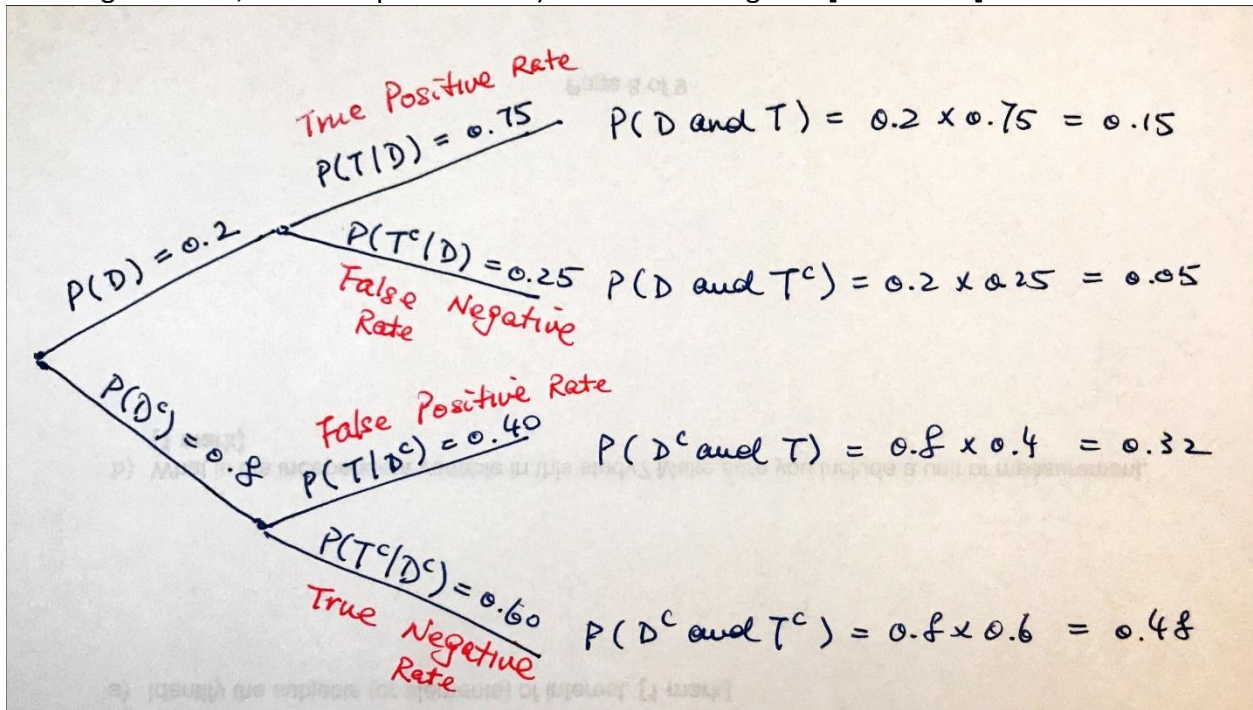 True Positive Rate
P(T/D) = 0.75
P(D and T) = 0.2 x 0.75 = 0.15
P(D) = 0.2
P(Tᶜ/D) = 0.25
False Negative
Rate
P(D and Tᶜ) = 0.2 x 0.25 = 0.05
P(Dᶜ) = 0.8
False Positive Rate
P(T/Dᶜ) = 0.40
P(Dᶜ and T) = 0.8 x 0.4 = 0.32
P(Tᶜ/Dᶜ) = 0.60
True Negative
Rate
P(Dᶜ and Tᶜ) = 0.8 x 0.6 = 0.48